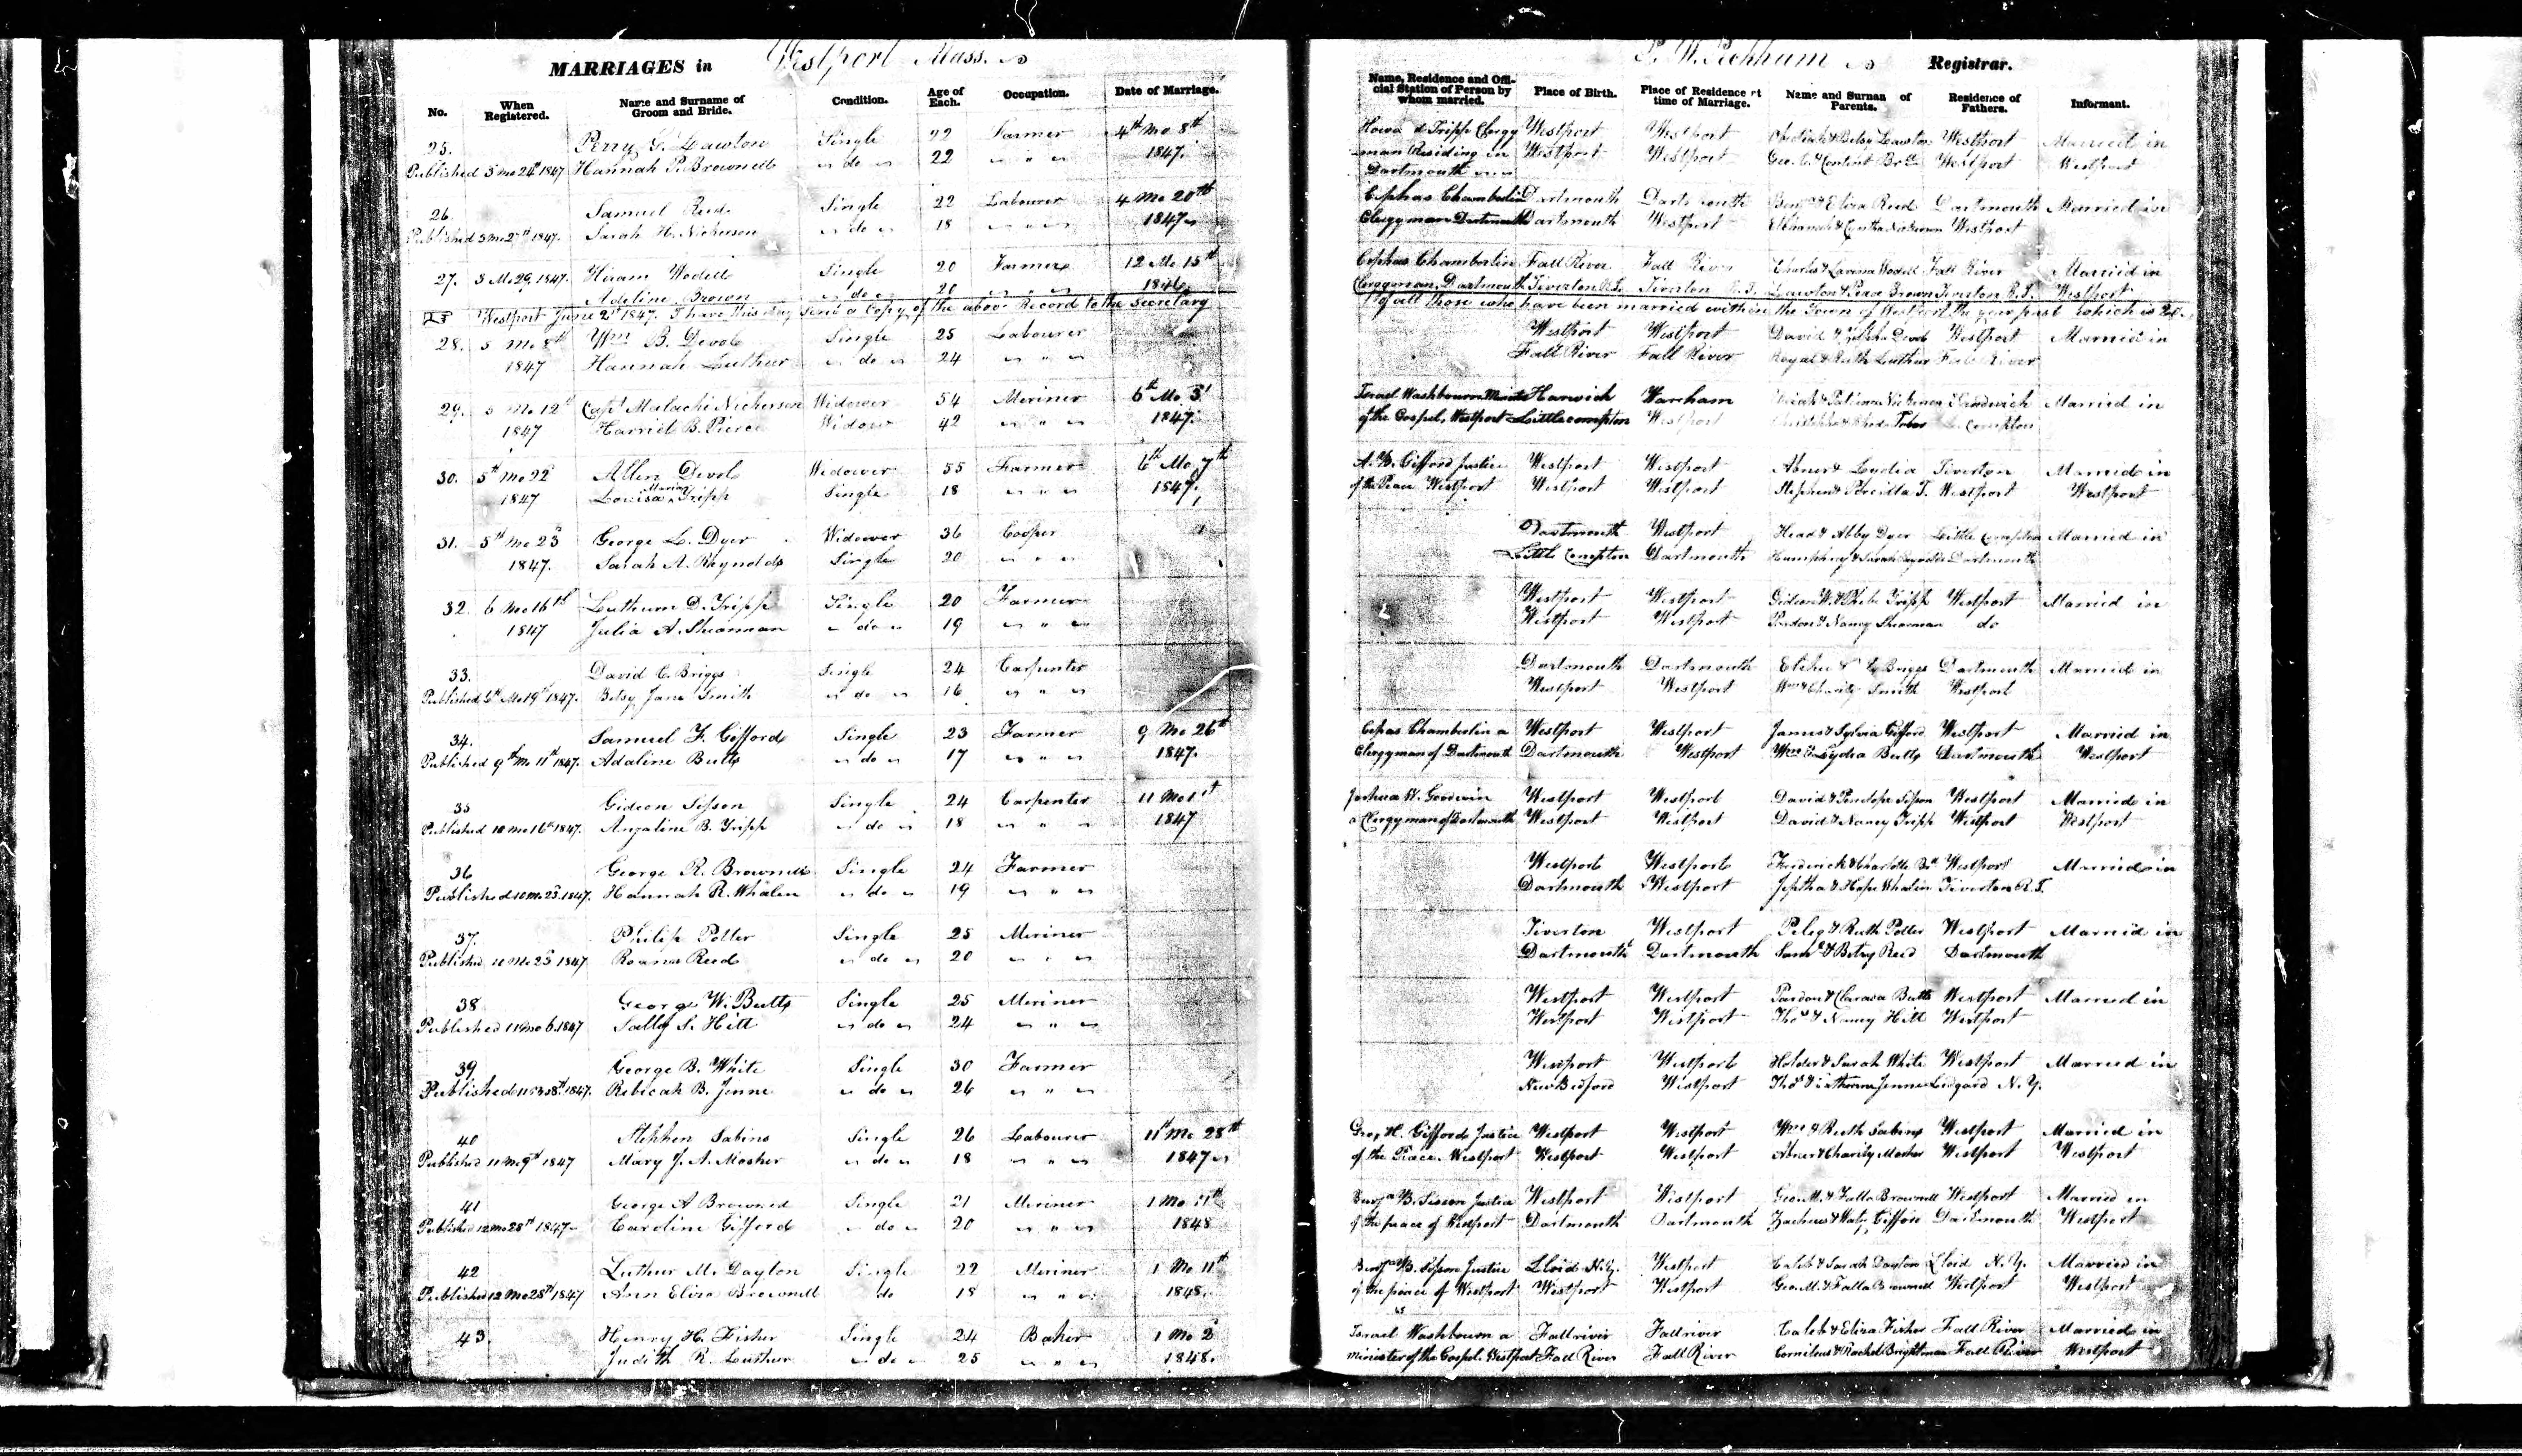 MARRIAGES in Westport Mass.
P. W. Peckham Registrar.
No. When Registered. Name and Surname of Groom and Bride. Condition. Age of Each. Occupation. Date of Marriage. Name, Residence and Official Station of Person by whom married. Place of Birth. Place of Residence at time of Marriage. Name and Surname of Parents. Residence of Fathers. Informant.
25. Perry G. Lawton Single 22 Farmer 4th Mo 8th Tripp Clergy Westport Westport & Betsy Lawton Westport Married in
Published 3 mo 24th 1847 Hannah P. Brownell do 22 " 1847. man Residing in Westport Westport Geo. & Content Westport Westport
Dartmouth
26. Samuel Reed Single 22 Labourer 4 Mo 20th Cephas Chamberlin Dartmouth Dartmouth Benj & Eliza Reed Dartmouth Married in
Published 3 mo 27th 1847. Sarah H. Nickerson do 18 " 1847 Clergyman Dartmouth Dartmouth Westport Westport
27. 3 Mo 29, 1847. Hiram Wodell Single 20 Farmer 12 Mo 15th Cephas Chamberlin Fall River Fall River Charles & Lavina Wodell Fall River Married in
Adeline Brown do 20 " 1846. Clergyman, Dartmouth Tiverton R.I. Tiverton R.I. Lawton & Peace Brown Tiverton R.I. Westport
Westport June 2d 1847. I have this day Send a Copy of the above Record to the Secretary of all those who have been married within the Town of Westport the year past which is
28. 5 Mo 8th Wm B. Devol Single 25 Labourer Westport Westport David & Devol Westport Married in
1847 Hannah Luthur do 24 " Fall River Fall River Royal & Ruth Luthur Fall River
29. 5 Mo 12th Capt Malachi Nickerson Widower 54 Meriner 6th Mo Israel Washbourn Harwich Wareham Sandwich Married in
1847 Harriet B. Pierce Widow 42 " 1847. of the Gospel, Westport Littlecompton Westport Compton
30. 5th Mo 22 Allen Devol Widower 55 Farmer 6th Mo 7th A. B. Gifford Justice Westport Westport Abner & Lydia Tiverton Married in
1847 Louisa Maria Tripp Single 18 " 1847. of the Peace Westport Westport Westport Stephen & Percilla T. Westport Westport
31. 5th Mo 23 George L. Dyer Widower 36 Cooper Dartmouth Westport Head & Abby Dyer Little Compton Married in
1847. Sarah A. Rhynolds Single 20 " Little Compton Dartmouth Humphrey & Sarah Dartmouth
32. 6 Mo 16th Luthum D. Tripp Single 20 Farmer Westport Westport Gideon W. & Phebe Tripp Westport Married in
1847 Julia A. Shearman do 19 " Westport Westport Pardon & Nancy Shearman do
33. David C. Briggs Single 24 Carpenter Dartmouth Dartmouth Briggs Dartmouth Married in
Published 6th Mo 19th 1847. Betsy Jane Smith do 16 " Westport Westport Wm & Charity Smith Westport
34. Samuel F. Gifford Single 23 Farmer 9 Mo 26th Cepas Chamberlin a Westport Westport James & Sylvia Gifford Westport Married in
Published 9th Mo 11th 1847. Adaline Butts do 17 " 1847. Clergyman of Dartmouth Dartmouth Westport Wm & Lydia Butts Dartmouth Westport
35 Gideon Sisson Single 24 Carpenter 11 Mo 1st Joshua W. Goodwin Westport Westport David & Penelope Sisson Westport Married in
Published 10 mo 16th 1847. Anjaline B. Tripp do 18 " 1847 a Clergyman of Dartmouth Westport Westport David & Nancy Tripp Westport Westport
36 George R. Brownell Single 24 Farmer Westport Westport Frederick & Charlotte Westport Married in
Published 10 mo 23. 1847. Hannah R. Whalen do 19 " Dartmouth Westport Jeptha & Hope Whalen Tiverton R.I.
37. Philip Potter Single 25 Meriner Tiverton Westport Peleg & Ruth Potter Westport Married in
Published 10 Mo 23 1847 Roana Reed do 20 " Dartmouth Dartmouth Saml & Betsy Reed Dartmouth
38 George W. Butts Single 25 Meriner Westport Westport Pardon & Clarasa Butts Westport Married in
Published 11 mo 6. 1847 Sally S. Hill do 24 " Westport Westport Thos & Nancy Hill Westport
39. George B. White Single 30 Farmer Westport Westport Holder & Sarah White Westport Married in
Published 11 mo 8th 1847. Rebicah B. Jenne do 26 " New Bedford Westport Thos & Catherine Jenne N.Y.
40 Stephen Sabins Single 26 Labourer 11th Mo 28th Geo, H. Gifford Justice Westport Westport Wm & Ruth Sabins Westport Married in
Published 11 Mo 9th 1847 Mary J. A. Mosher do 18 " 1847 of the Peace. Westport Westport Westport Abner & Charity Mosher Westport Westport
41 George A Brownell Single 21 Meriner 1 Mo 11th Benja B. Sisson Justice Westport Westport Geo. M. & Falla Brownell Westport Married in
Published 12 mo 28th 1847 Caroline Gifford do 20 " 1848 of the peace of Westport Dartmouth Dartmouth Zacheus & Gifford Dartmouth Westport
42 Luthur M. Dayton Single 22 Meriner 1 Mo 11th Benja B. Sisson Justice Lloid N.Y. Westport Caleb & Sarah Dayton Lloid N.Y. Married in
Published 12 Mo 28th 1847 Ann Eliza Brownell do 18 " 1848. of the peace of Westport Westport Westport Geo. M. & Falla Brownell Westport Westport
43. Henry H. Fisher Single 24 Baker 1 Mo 2 Israel Washbourn a Fallriver Fallriver Caleb & Eliza Fisher Fall River Married in
Judith R. Luthur do 25 " 1848. minister of the Gospel. Westport Fall River Fall River Cornileus & Rachel Brightman Fall River Westport